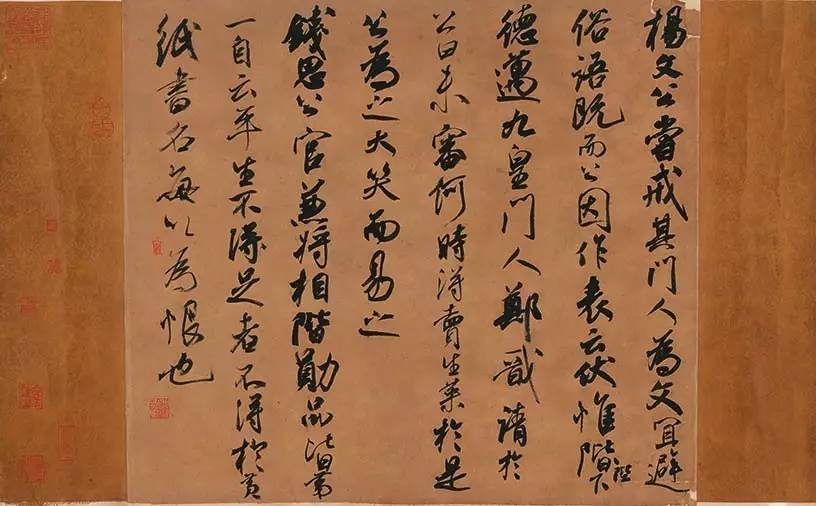 楊文公嘗戒其門人為文宜避
俗語既而公因作表云伏惟階下
陛
德邁九皇門人鄭戩請於
公曰未審何時得賣生菜於是
公為之大笑而易之
錢思公官兼將相階勛品皆第
一自云平生不得足者不得於黃
紙書名每以為恨也